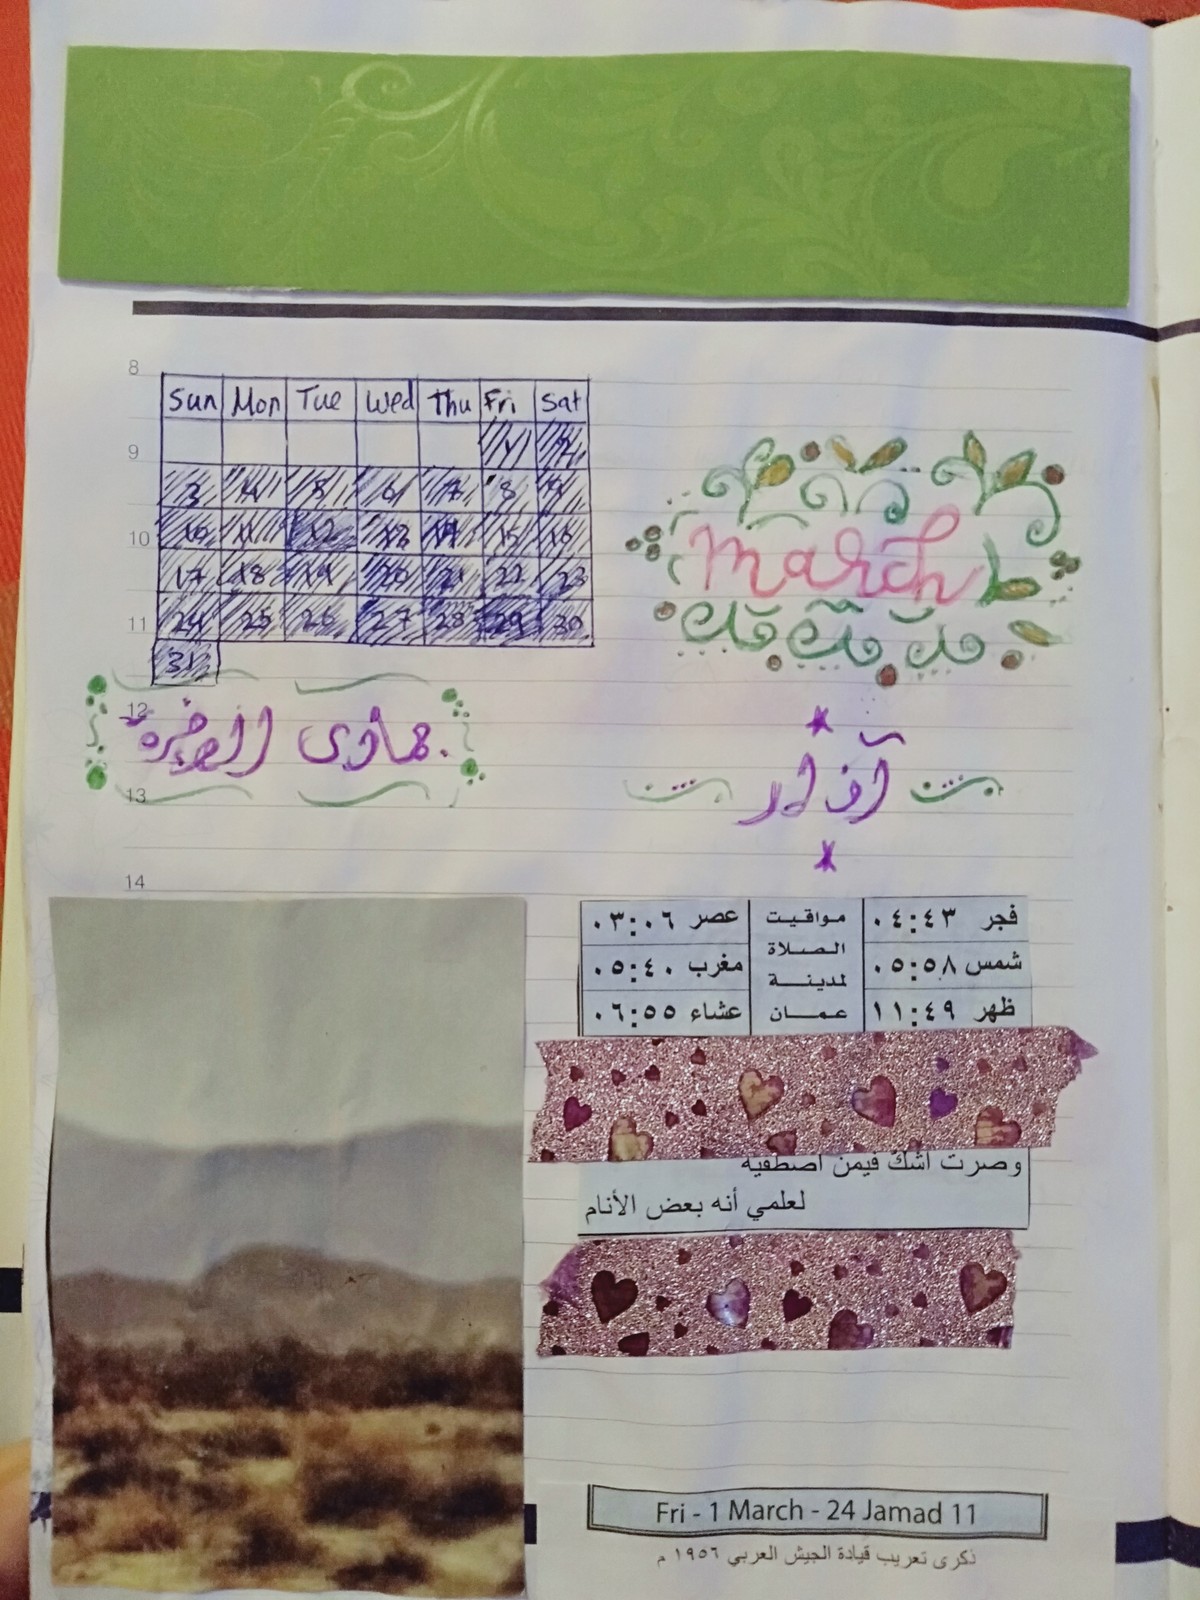 8
Sun Mon Tue Wed Thu Fri Sat
9
1 2
3 4 5 6 7 8 9
10
10 11 12 13 14 15 16
17 18 19 20 21 22 23
11
24 25 26 27 28 29 30
31
March
12
جمادى الآخرة
آذار
13
14
فجر ٠٤:٤٣ مواقيت عصر ٠٣:٠٦
الصلاة
شمس ٠٥:٥٨ لمدينة مغرب ٠٥:٤٠
ظهر ١١:٤٩ عمان عشاء ٠٦:٥٥
وصرت أشكّ فيمن أصطفيه
لعلمي أنه بعض الأنام
Fri - 1 March - 24 Jamad 11
ذكرى تعريب قيادة الجيش العربي ١٩٥٦ م